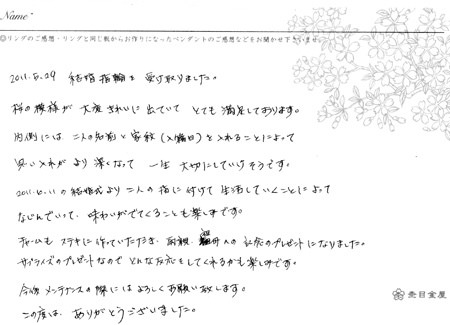 Name
◎リングのご感想・リングと同じ板からお作りになったペンダントのご感想などをお聞かせ下さいませ。
2011.5.29 結婚指輪を受け取りました。
桜の模様が大変きれいに出ていて とても満足しております。
内側には 二人の名前と家紋(入籍日)を入れることによって
思い入れが より深くなって 一生 大切にしていけそうです。
の結婚式より二人の指に付けて生活していくことによって
なじんでいって、味わいがでてくることも楽しみです。
チャームも ステキに作っていただき、両親、祖母への記念のプレゼントになりました。
サプライズのプレゼントなので どんな反応をしてくれるかも楽しみです。
今後 メンテナンスの際にはよろしくお願い致します。
この度は、ありがとうございました。
杢目金屋